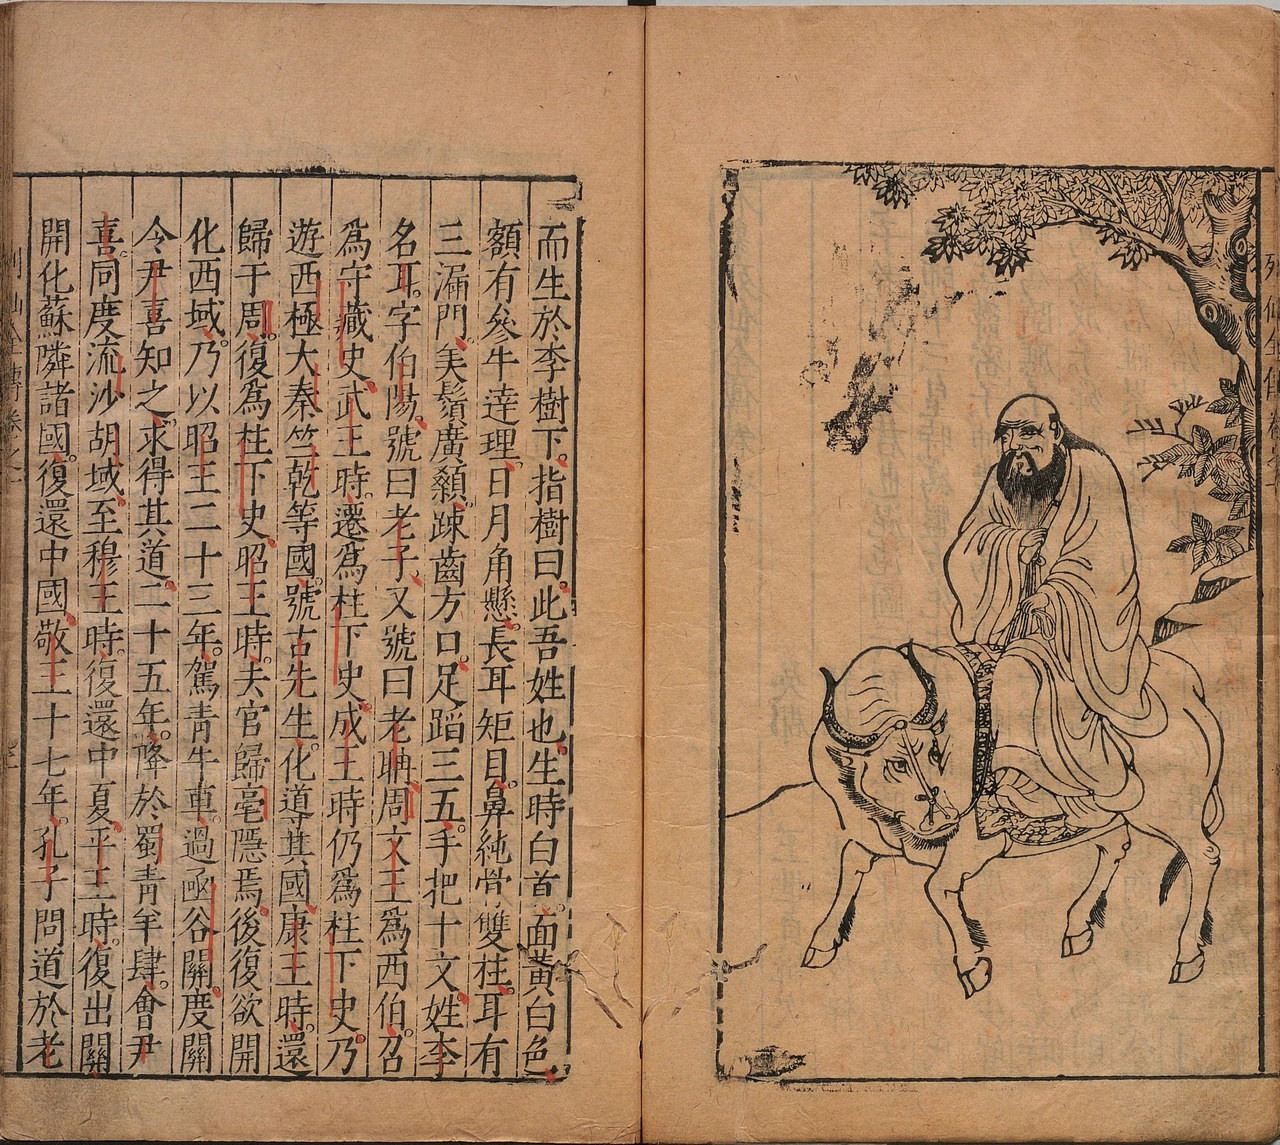 列仙全傳 卷之一
而生於李樹下。指樹曰。此吾姓也。生時白首。面黃白色。
額有參牛達理。日月角懸。長耳矩目。鼻純骨雙柱。耳有
三漏門。美鬚廣顙。踈齒方口。足蹈三五。手把十文。姓李
名耳。字伯陽。號曰老子。又號曰老聃。周文王爲西伯。召
爲守藏史。武王時。遷爲柱下史。成王時仍爲柱下史。乃
遊西極大秦竺乾等國。號古先生。化導其國。康王時。還
歸于周。復爲柱下史。昭王時。去官歸亳隱焉。後復欲開
化西域。乃以昭王二十三年。駕青牛車。過函谷關。度關
令尹喜知之。求得其道。二十五年。降於蜀青羊肆。會尹
喜。同度流沙胡域。至穆王時。復還中夏。平王時。復出關
開化蘇隣諸國。復還中國。敬王十七年。孔子問道於老
列仙全傳 卷之一